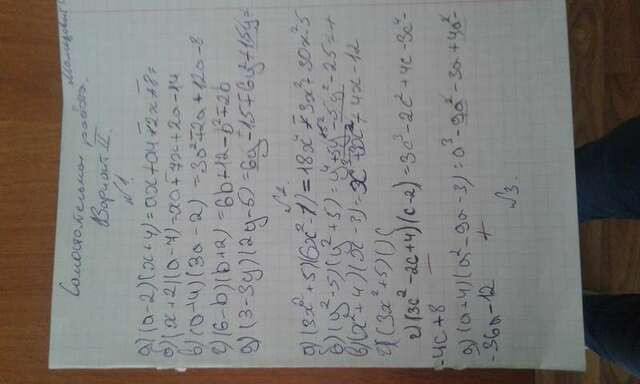 Самостоятельная работа.
Вариант II.
№1.
а) (a-2)(x+4)=ax+a4-2x-8=
б) (x+2)(a-7)=xa-7x+2a-14
в) (a+4)(3a-2)=3a²-2a+12a-8
г) (6-b)(b+2)=6b+12-b²-2b
д) (3-3y)(2y-5)=6y-15-6y²+15y=
№2.
а) (3x²+5)(6x²-1)=18x⁴-3x²+30x²5
б) (y²-5)(y²+5)=y⁴+5y²-5y²-25=
в) (x²+4)(x-3)=x³-3x²+4x-12
г) (3x²+5)()(
г) (3c²-2c+4)(c-2)=3c³-2c²+4c-3c⁴-
-4c+8
д) (a+4)(a²-9a-3)=a³-9a²-3a+4a²-
-36a-12
№3.